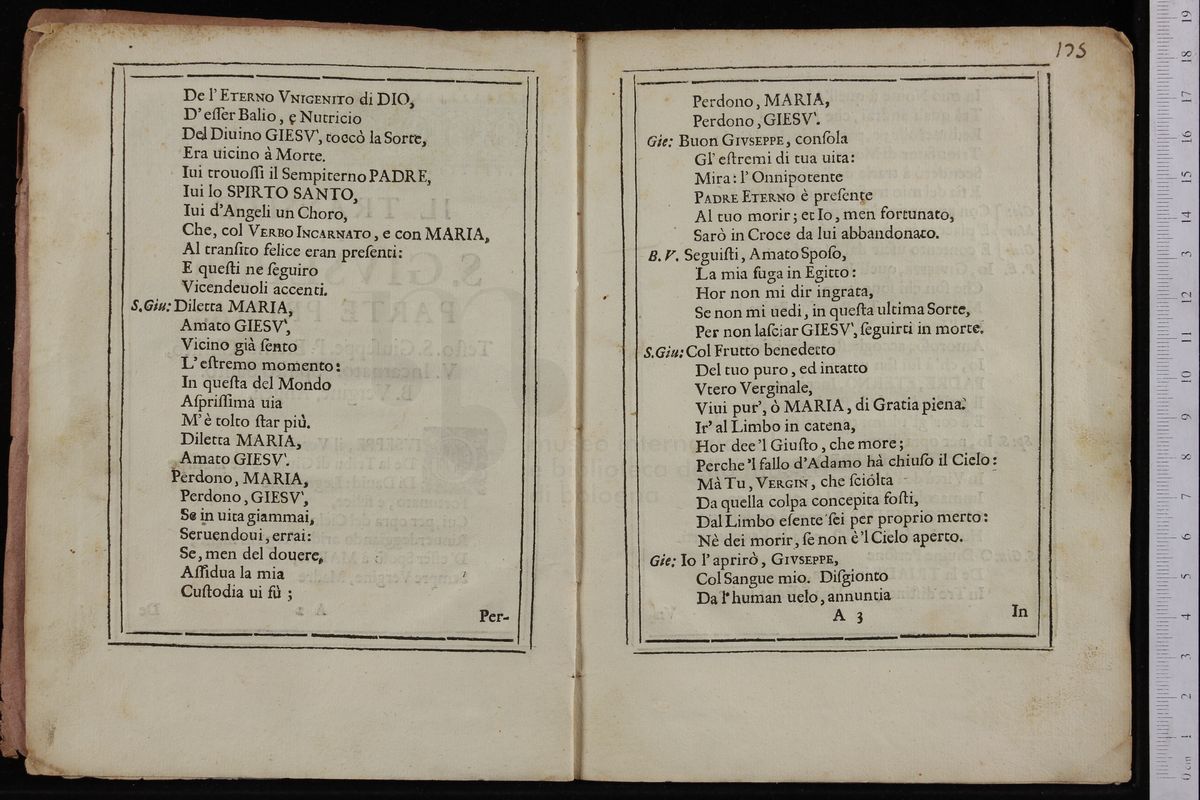 De l'ETERNO VNIGENITO di DIO,
D'eſſer Balio, e Nutricio
Del Diuino GIESV', toccò la Sorte,
Era uicino à Morte.
Iui trouoſſi il Sempiterno PADRE,
Iui lo SPIRTO SANTO,
Iui d'Angeli un Choro,
Che, col VERBO INCARNATO, e con MARIA,
Al tranſito felice eran preſenti:
E queſti ne ſeguiro
Vicendeuoli accenti.
S.Giu: Diletta MARIA,
Amato GIESV',
Vicino già ſento
L'eſtremo momento:
In queſta del Mondo
Aſpriſſima uia
M'è tolto ſtar più.
Diletta MARIA,
Amato GIESV'.
Perdono, MARIA,
Perdono, GIESV',
Se in uita giammai,
Seruendoui, errai:
Se, men del douere,
Aſſidua la mia
Cuſtodia ui fù;
Per-
175
Perdono, MARIA,
Perdono, GIESV'.
Gie: Buon GIVSEPPE, conſola
Gl'eſtremi di tua uita:
Mira: l'Onnipotente
PADRE ETERNO è preſente
Al tuo morir; et Io, men fortunato,
Sarò in Croce da lui abbandonato.
B.V. Seguiſti, Amato Spoſo,
La mia fuga in Egitto:
Hor non mi dir ingrata,
Se non mi uedi, in queſta ultima Sorte,
Per non laſciar GIESV', ſeguirti in morte.
S.Giu: Col Frutto benedetto
Del tuo puro, ed intatto
Vtero Verginale,
Viui pur', ò MARIA, di Gratia piena.
Ir' al Limbo in catena,
Hor dee 'l Giuſto, che more;
Perche 'l fallo d'Adamo hà chiuſo il Cielo:
Mà Tu, VERGIN, che ſciolta
Da quella colpa concepita foſti,
Dal Limbo eſente ſei per proprio merto:
Nè dei morir, ſe non è 'l Cielo aperto.
Gie: Io l'aprirò, GIVSEPPE,
Col Sangue mio. Diſgionto
Da l'human uelo, annuntia
A 3
In